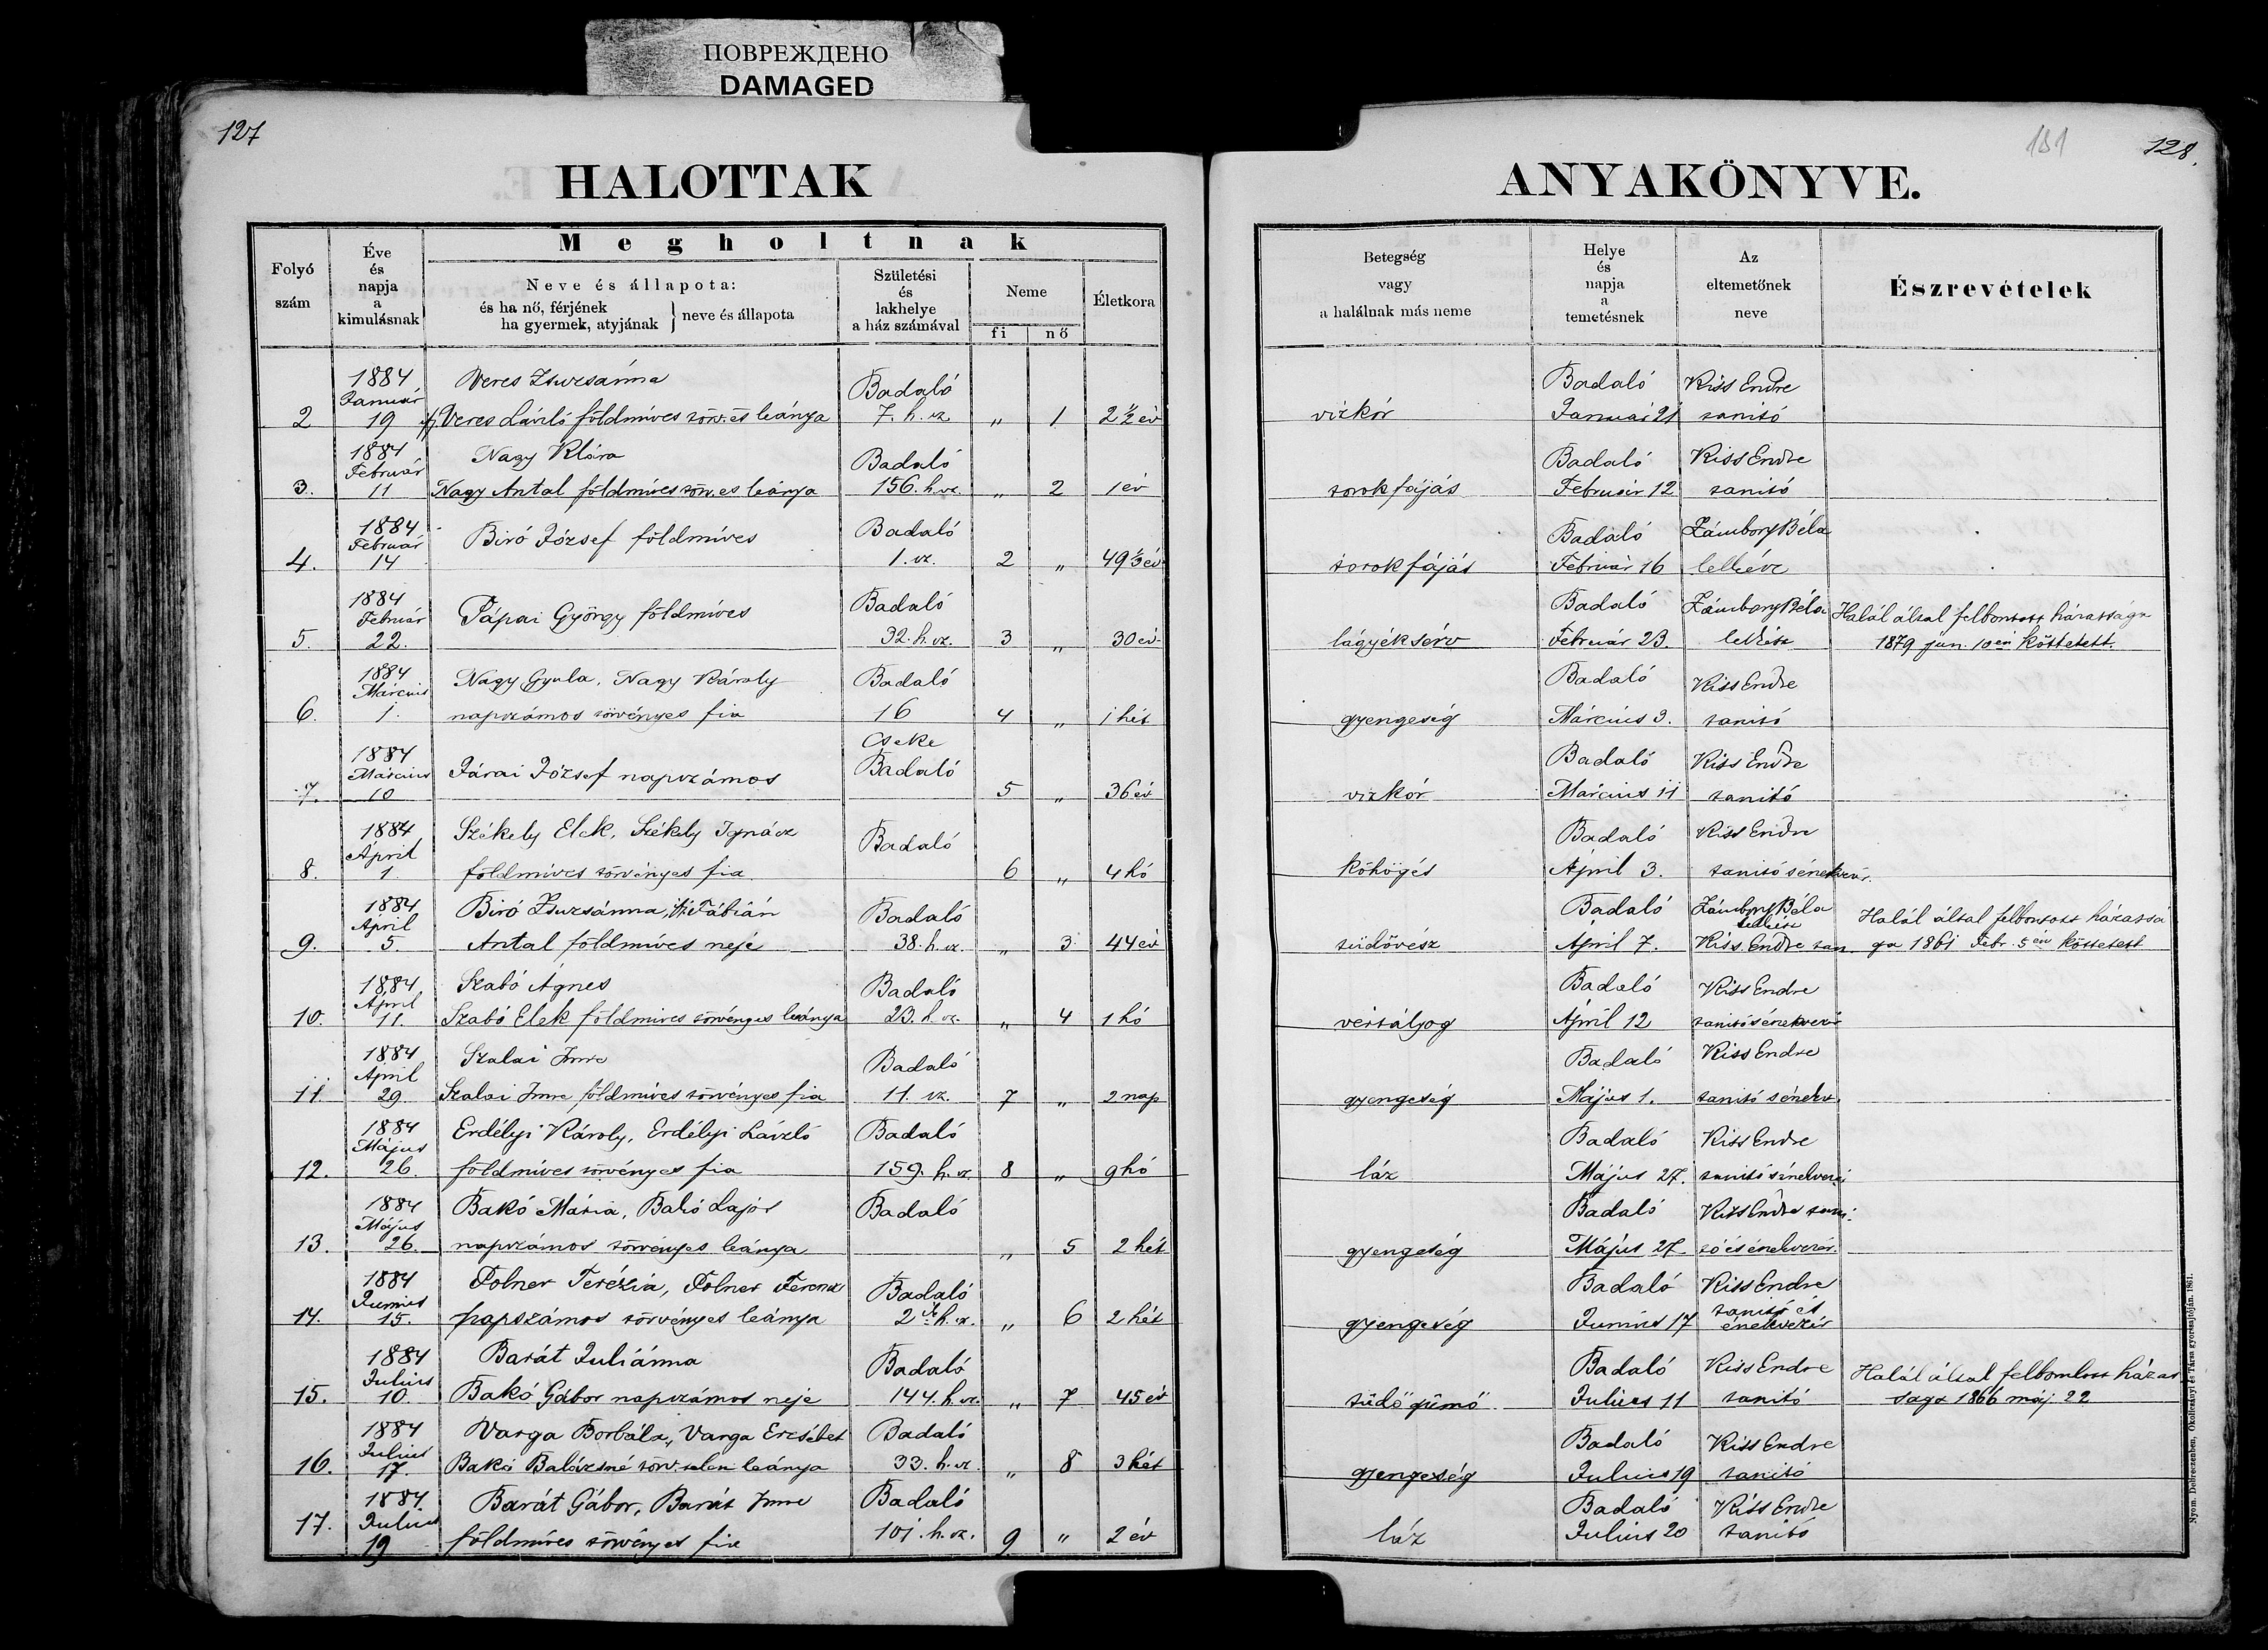 ПОВРЕЖДЕНО
DAMAGED
127
HALOTTAK
Folyó
szám
Éve
és
napja
a
kimulásnak
Megholtnak
Neve és állapota:
és ha nő, férjének
ha gyermek, atyjának } neve és állapota
Születési
és
lakhelye
a ház számával
Neme
fi nő
Életkora
1884 Veres Zsuzsánna Badaló
Január
2 19 Veres László földmíves törv. és leánya 7. h. sz. „ 1 2 ½ év
1884 Nagy Klára Badaló
Február
3. 11 Nagy Antal földmíves törv. es leánya 156. h. sz. „ 2 1 év
1884 Biró József földmíves Badaló
Február
4. 14 1. sz. 2 „ 49 ½ év
1884 Pápai György földmíves Badaló
Február
5. 22. 32. h. sz. 3 „ 30 év
1884 Nagy Gyula, Nagy Károly Badaló
Március
6. 1. napszámos törvényes fia 16 4 „ 1 hét
Cseke
1884 József napszámos Badaló
Március
7. 10 5 „ 36 év
1884 Székely Elek, Székely Ignácz Badaló
April
8. 1. földmíves törvényes fia 6 „ 4 hó
1884 Biró Zsuzsánna, Fábián Badaló
April
9. 5. Antal földmíves neje 38. h. sz. „ 3 44 év
1884 Szabó Ágnes Badaló
April
10. 11. Szabó Elek földmíves törvényes leánya 23. h. sz. „ 4 1 hó
1884 Szalai Imre Badaló
April
11. 29. Szalai Imre földmíves törvényes fia 11. sz. 7 „ 2 nap
1884 Erdélyi Károly, Erdélyi László Badaló
Május
12. 26. földmíves törvényes fia 159. h. sz. 8 „ 9 hó
1884 Bakó Mária, Bakó Lajos Badaló
Május
13. 26. napszámos törvényes leánya „ 5 2 hét
1884 Folner Terézia, Folner Ferencz Badaló
Junius
14. 15. napszámos törvényes leánya 2 h. sz. „ 6 2 hét
1884 Barát Juliánna Badaló
Julius
15. 10. Bakó Gábor napszámos neje 144. h. sz. „ 7 45 év
1884 Varga Borbála, Varga Erzsébet Badaló
Julius
16. 17. Bakó Balázsné törv. telen leánya 33. h. sz. „ 8 3 hét
1884 Barát Gábor, Barát Imre Badaló
Julius
17. 19 földmíves törvényes fia 101. h. sz. 9 „ 2 év
181 128.
ANYAKÖNYVE.
Betegség
vagy
a halálnak más neme
Helye
és
napja
a
temetésnek
Az
eltemetőnek
neve
Észrevételek
Badaló Kiss Endre
vizkór Január 21 tanitó
Badaló Kiss Endre
torokfájás Február 12 tanitó
Badaló Zámbory Béla
torokfájás Február 16 lelkész
Badaló Zámbory Béla Halál által felbontott házassága
lágyéksérv Február 23. lelkész 1879 jun. 10 én köttetett.
Badaló Kiss Endre
gyengeség Március 3. tanitó
Badaló Kiss Endre
vizkór Március 11 tanitó
Badaló Kiss Endre
köhögés April 3. tanitó s énekvez.
Badaló Zámbory Béla Halál által felbontott házassá
lelkész
tüdővész April 7. Kiss Endre tan. ga 1861 Febr. 5 én köttetett
Badaló Kiss Endre
April 12 tanitó s énekvezér
Badaló Kiss Endre
gyengeség Május 1. tanitó s énekv.
Badaló Kiss Endre
láz Május 27. tanitó s énekvezé
Badaló Kiss Endre tani.
gyengeség Május 27 tó és énekvezér.
Badaló Kiss Endre
gyengeség Junius 17 tanitó és
énekvezér
Badaló Kiss Endre Halál által felbomlott házas
tüdő gümő Julius 11 tanitó sága 1866 máj. 22
Badaló Kiss Endre
gyengeség Julius 19 tanitó
Badaló Kiss Endre
láz Julius 20 tanitó